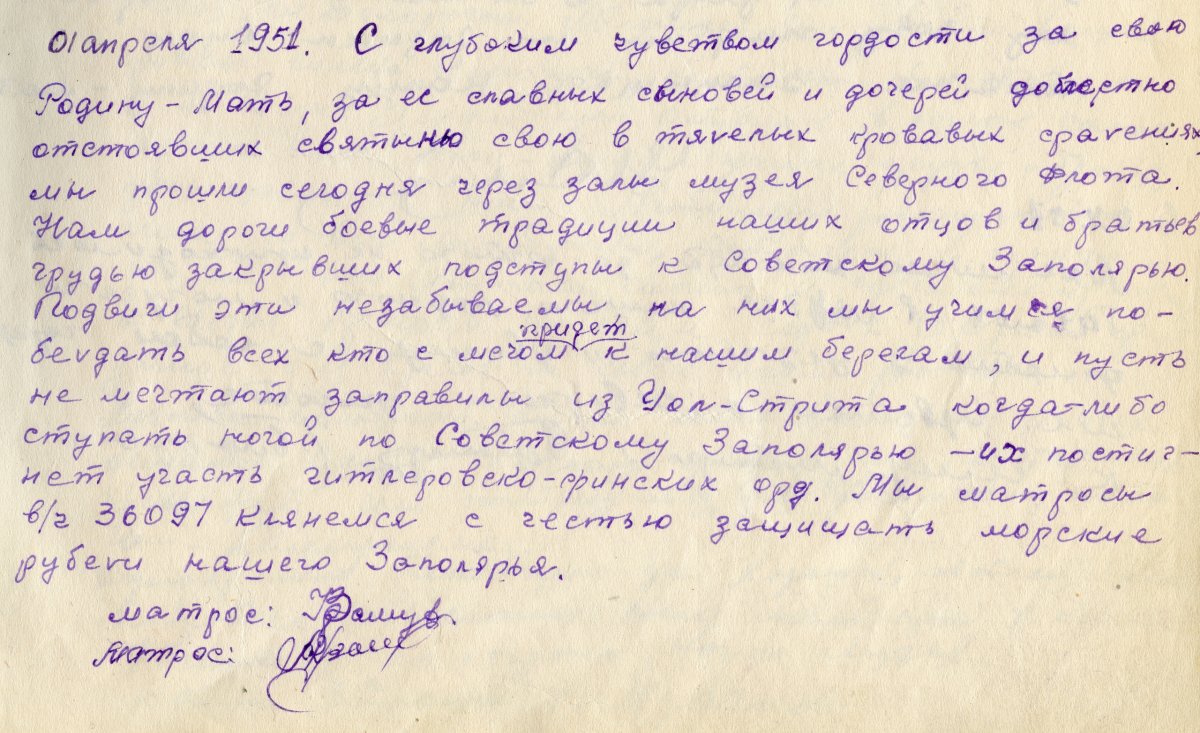 01 апреля 1951. С глубоким чувством гордости за свою
Родину-Мать, за ее славных сыновей и дочерей доблестно
отстоявших святыню свою в тяжелых кровавых сражениях,
мы прошли сегодня через залы музея Северного Флота.
Нам дороги боевые традиции наших отцов и братьев
грудью закрывших подступы к Советскому Заполярью.
Подвиги эти незабываемы, на них мы учимся по-
беждать всех кто с мечом придет к нашим берегам, и пусть
не мечтают заправилы из Уол-Стрита когда-либо
ступать ногой по Советскому Заполярью - их постиг-
нет участь гитлеровско-финских орд. Мы матросы
в/ч 36097 клянемся с честью защищать морские
рубежи нашего Заполярья.
матрос:
матрос: